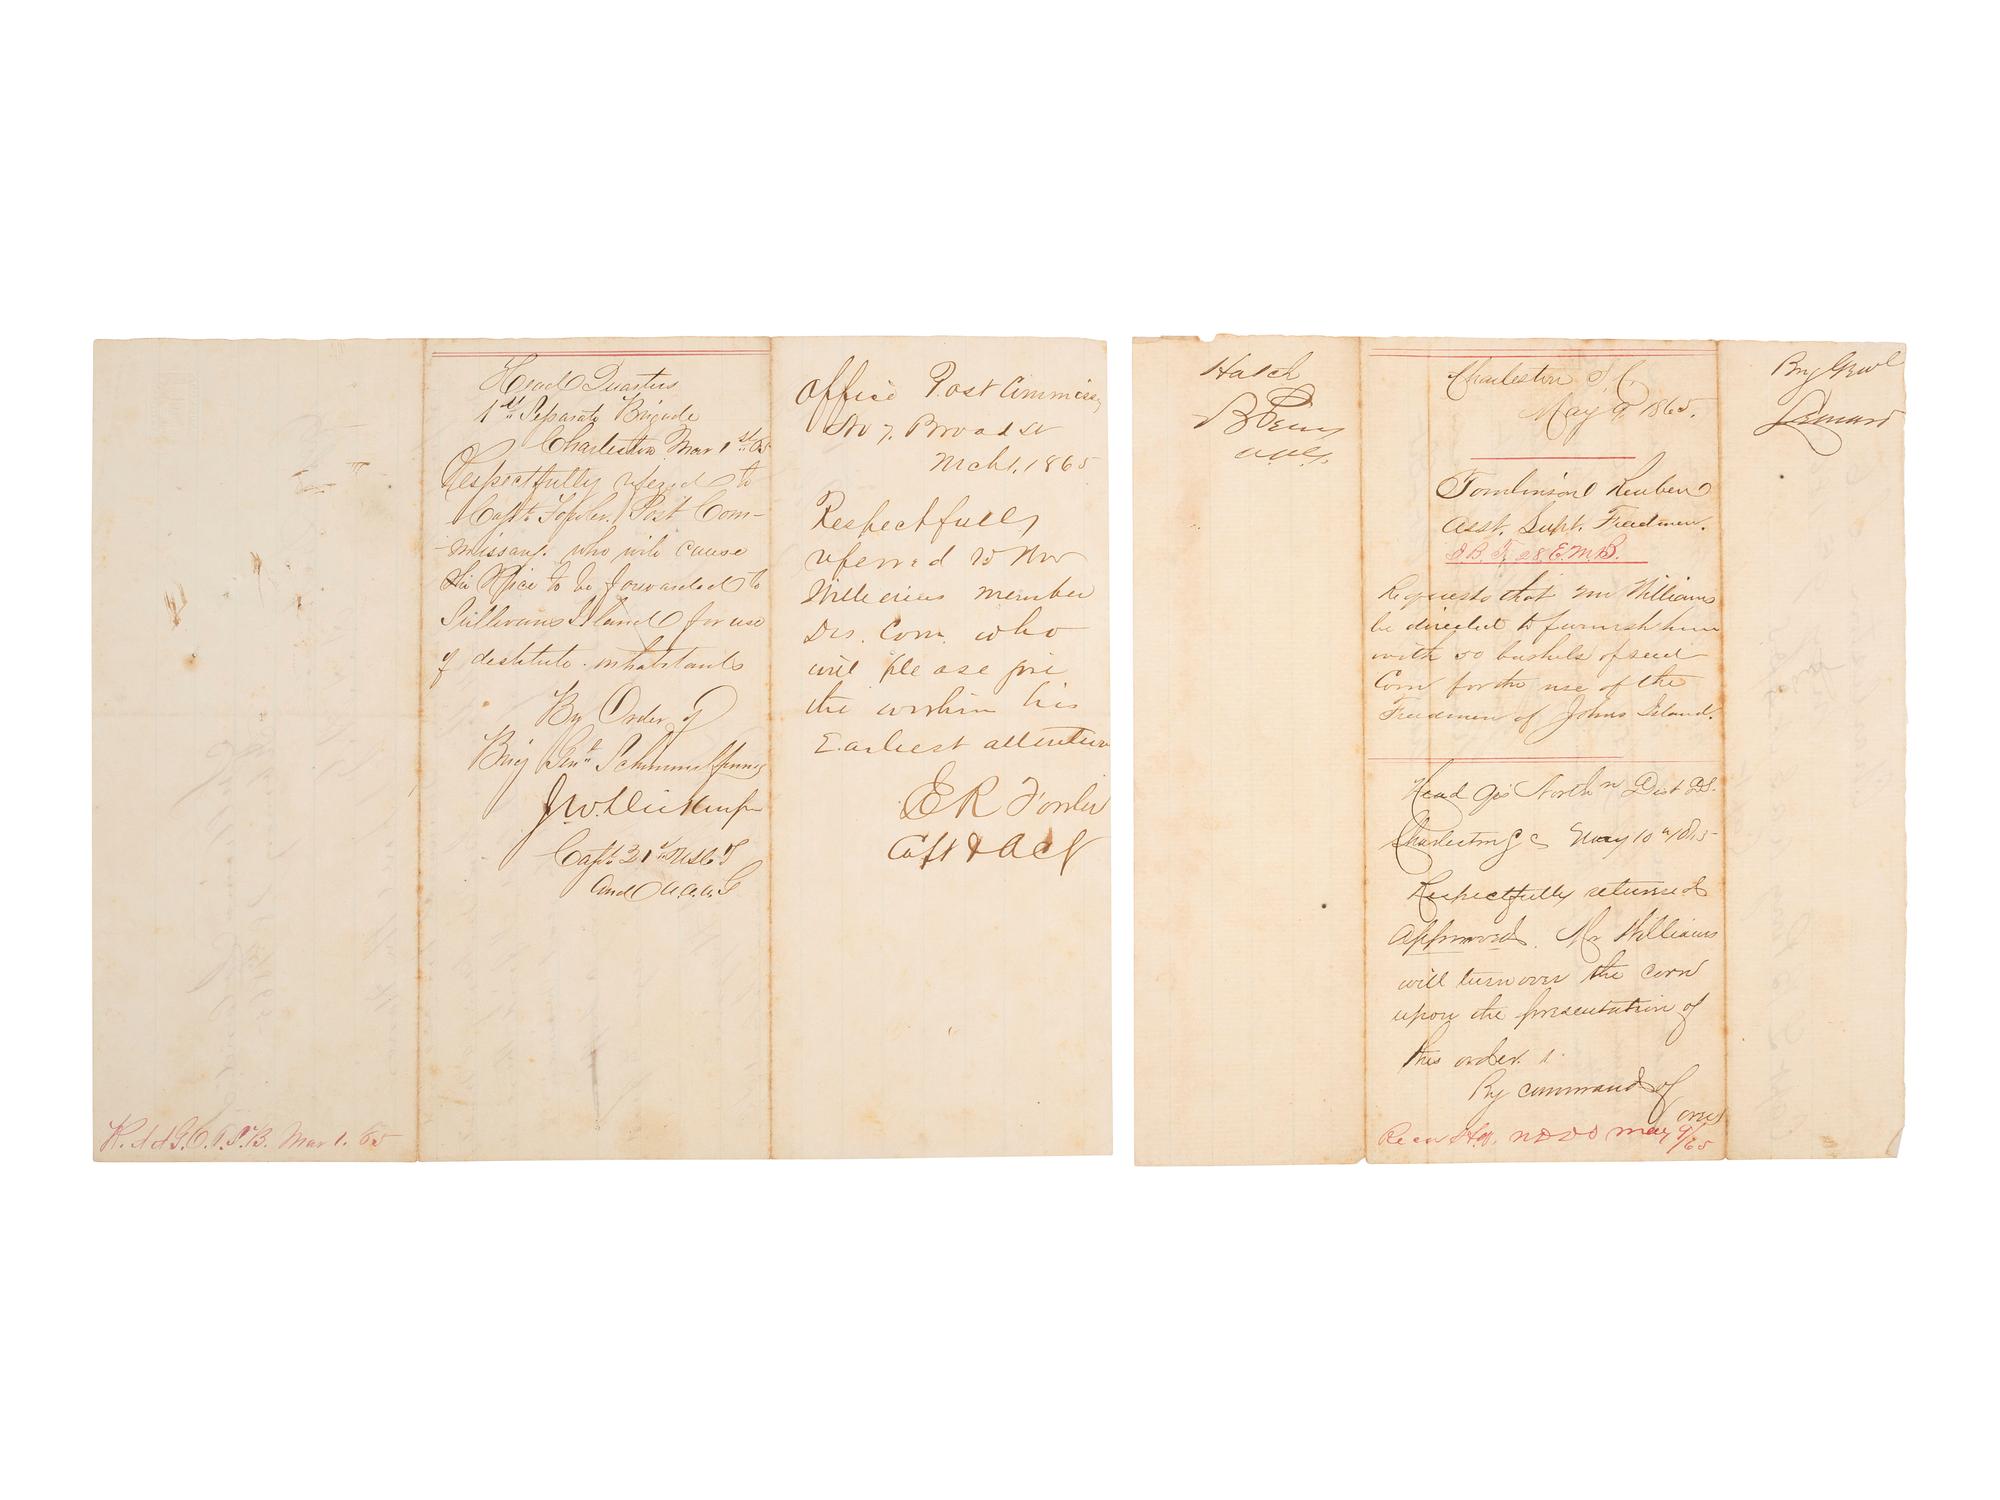 Head Quarters
1st Separate Brigade
Charleston Mar 1st 65
Respectfully refered to
Capt. Fowler. Post Com-
missary. who will cause
the Rice to be forwarded to
Sullivans Island for use
of destitute inhabitants
By Order of
Brig Genl Schimmelfennig
Capt 21st U.S.C.T
and A.A.A.G
Mar 1. 65
Office Post Commissy
No 7. Broad St
Mch 1. 1865
Respectfully
referred to Mr
Williams member
Dis. Com. who
will please give
the within his
Earliest attention
E R Fowler
Capt & ACS
Hatch
Charleston S.C.
May 9. 1865.
Tomlinson Reuben
Asst. Supt. Freedmen.
Requests that Mr Williams
be directed to furnish him
with 50 bushels of seed
Corn for the use of the
Freedmen of Johns Island.
Head Qrs North n Dist D.S.
Charleston S C May 10th 1865
Respectfully returned
Approved. Mr Williams
will turn over the corn
upon the presentation of
this order.
By command of
Recd Hq. NDDS May 9/65
Brig Genl